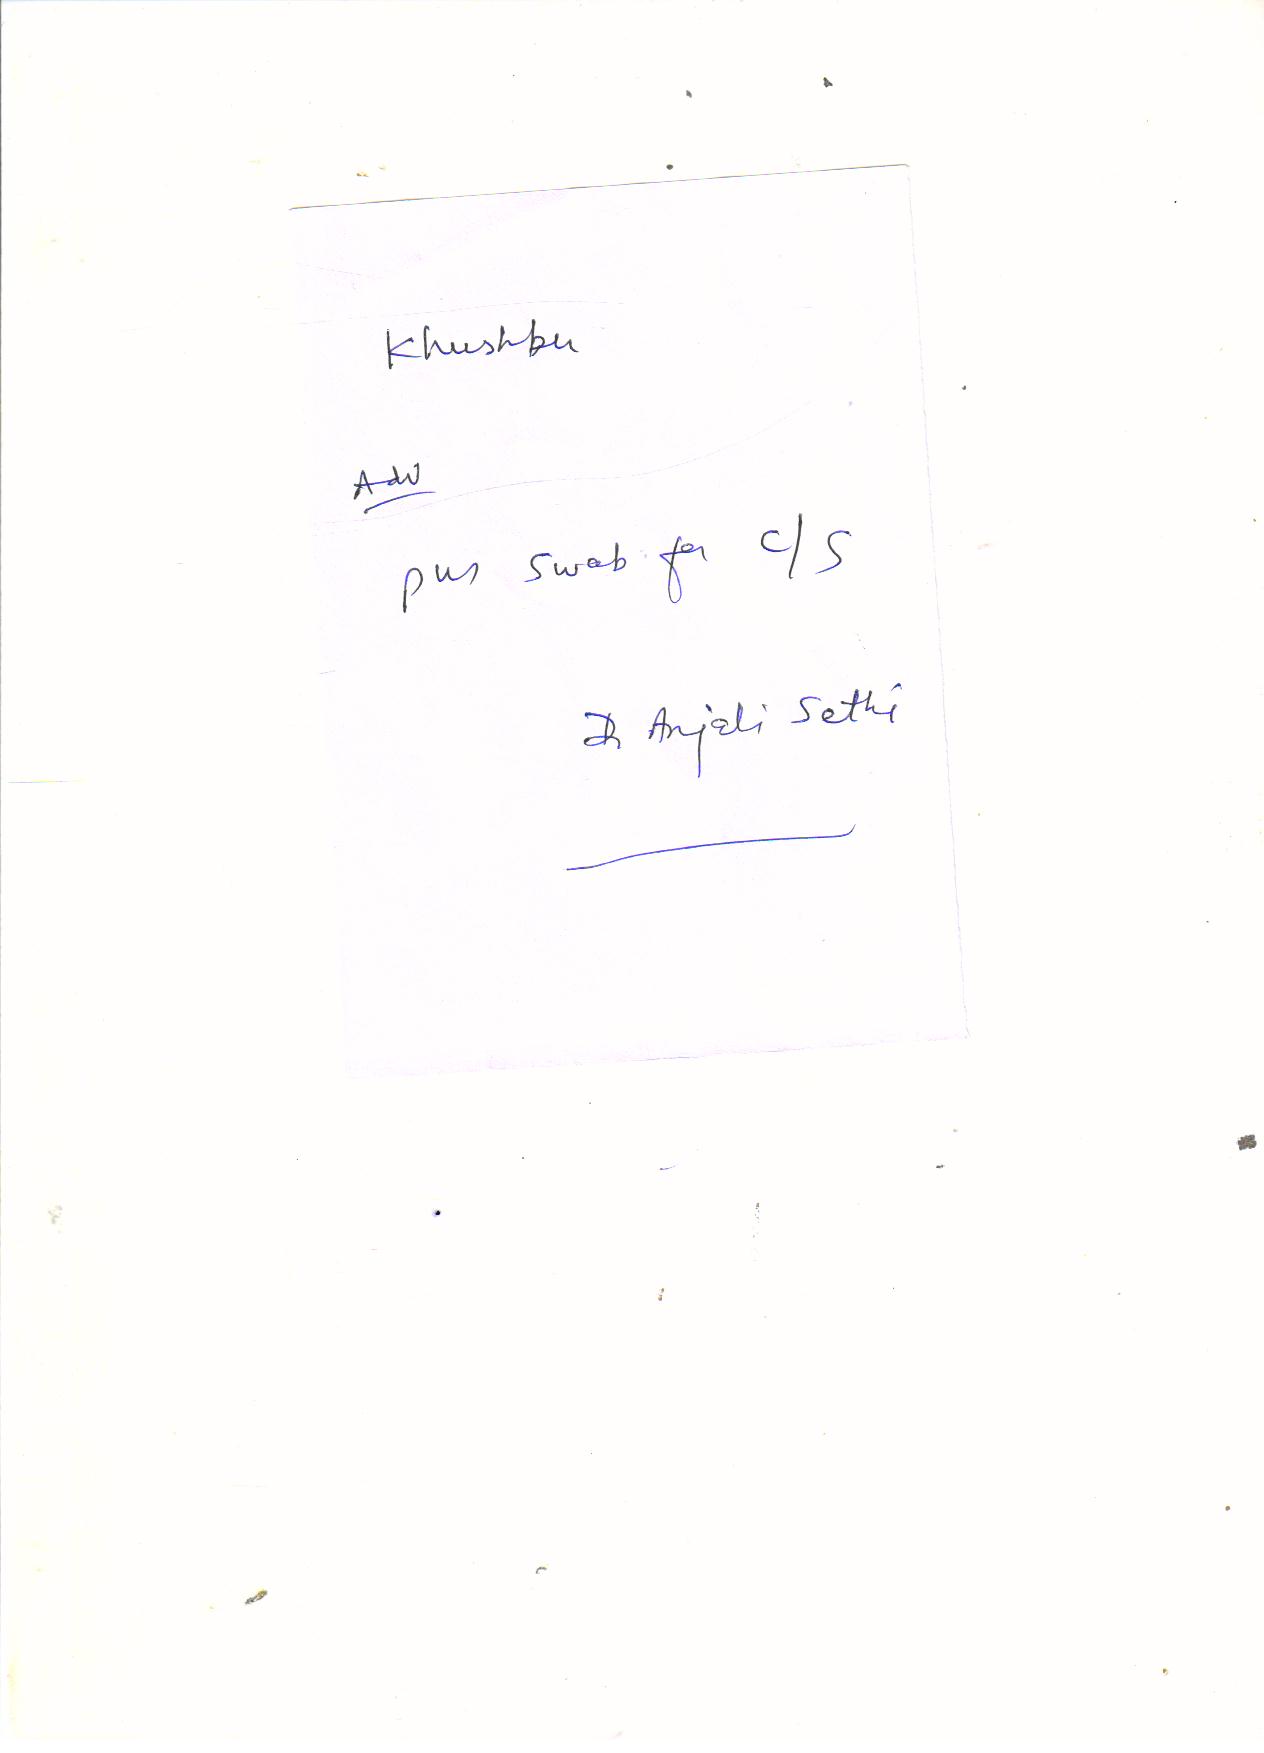 Khushbu
Adv
pus swab for c/s
Dr Anjali Sethi